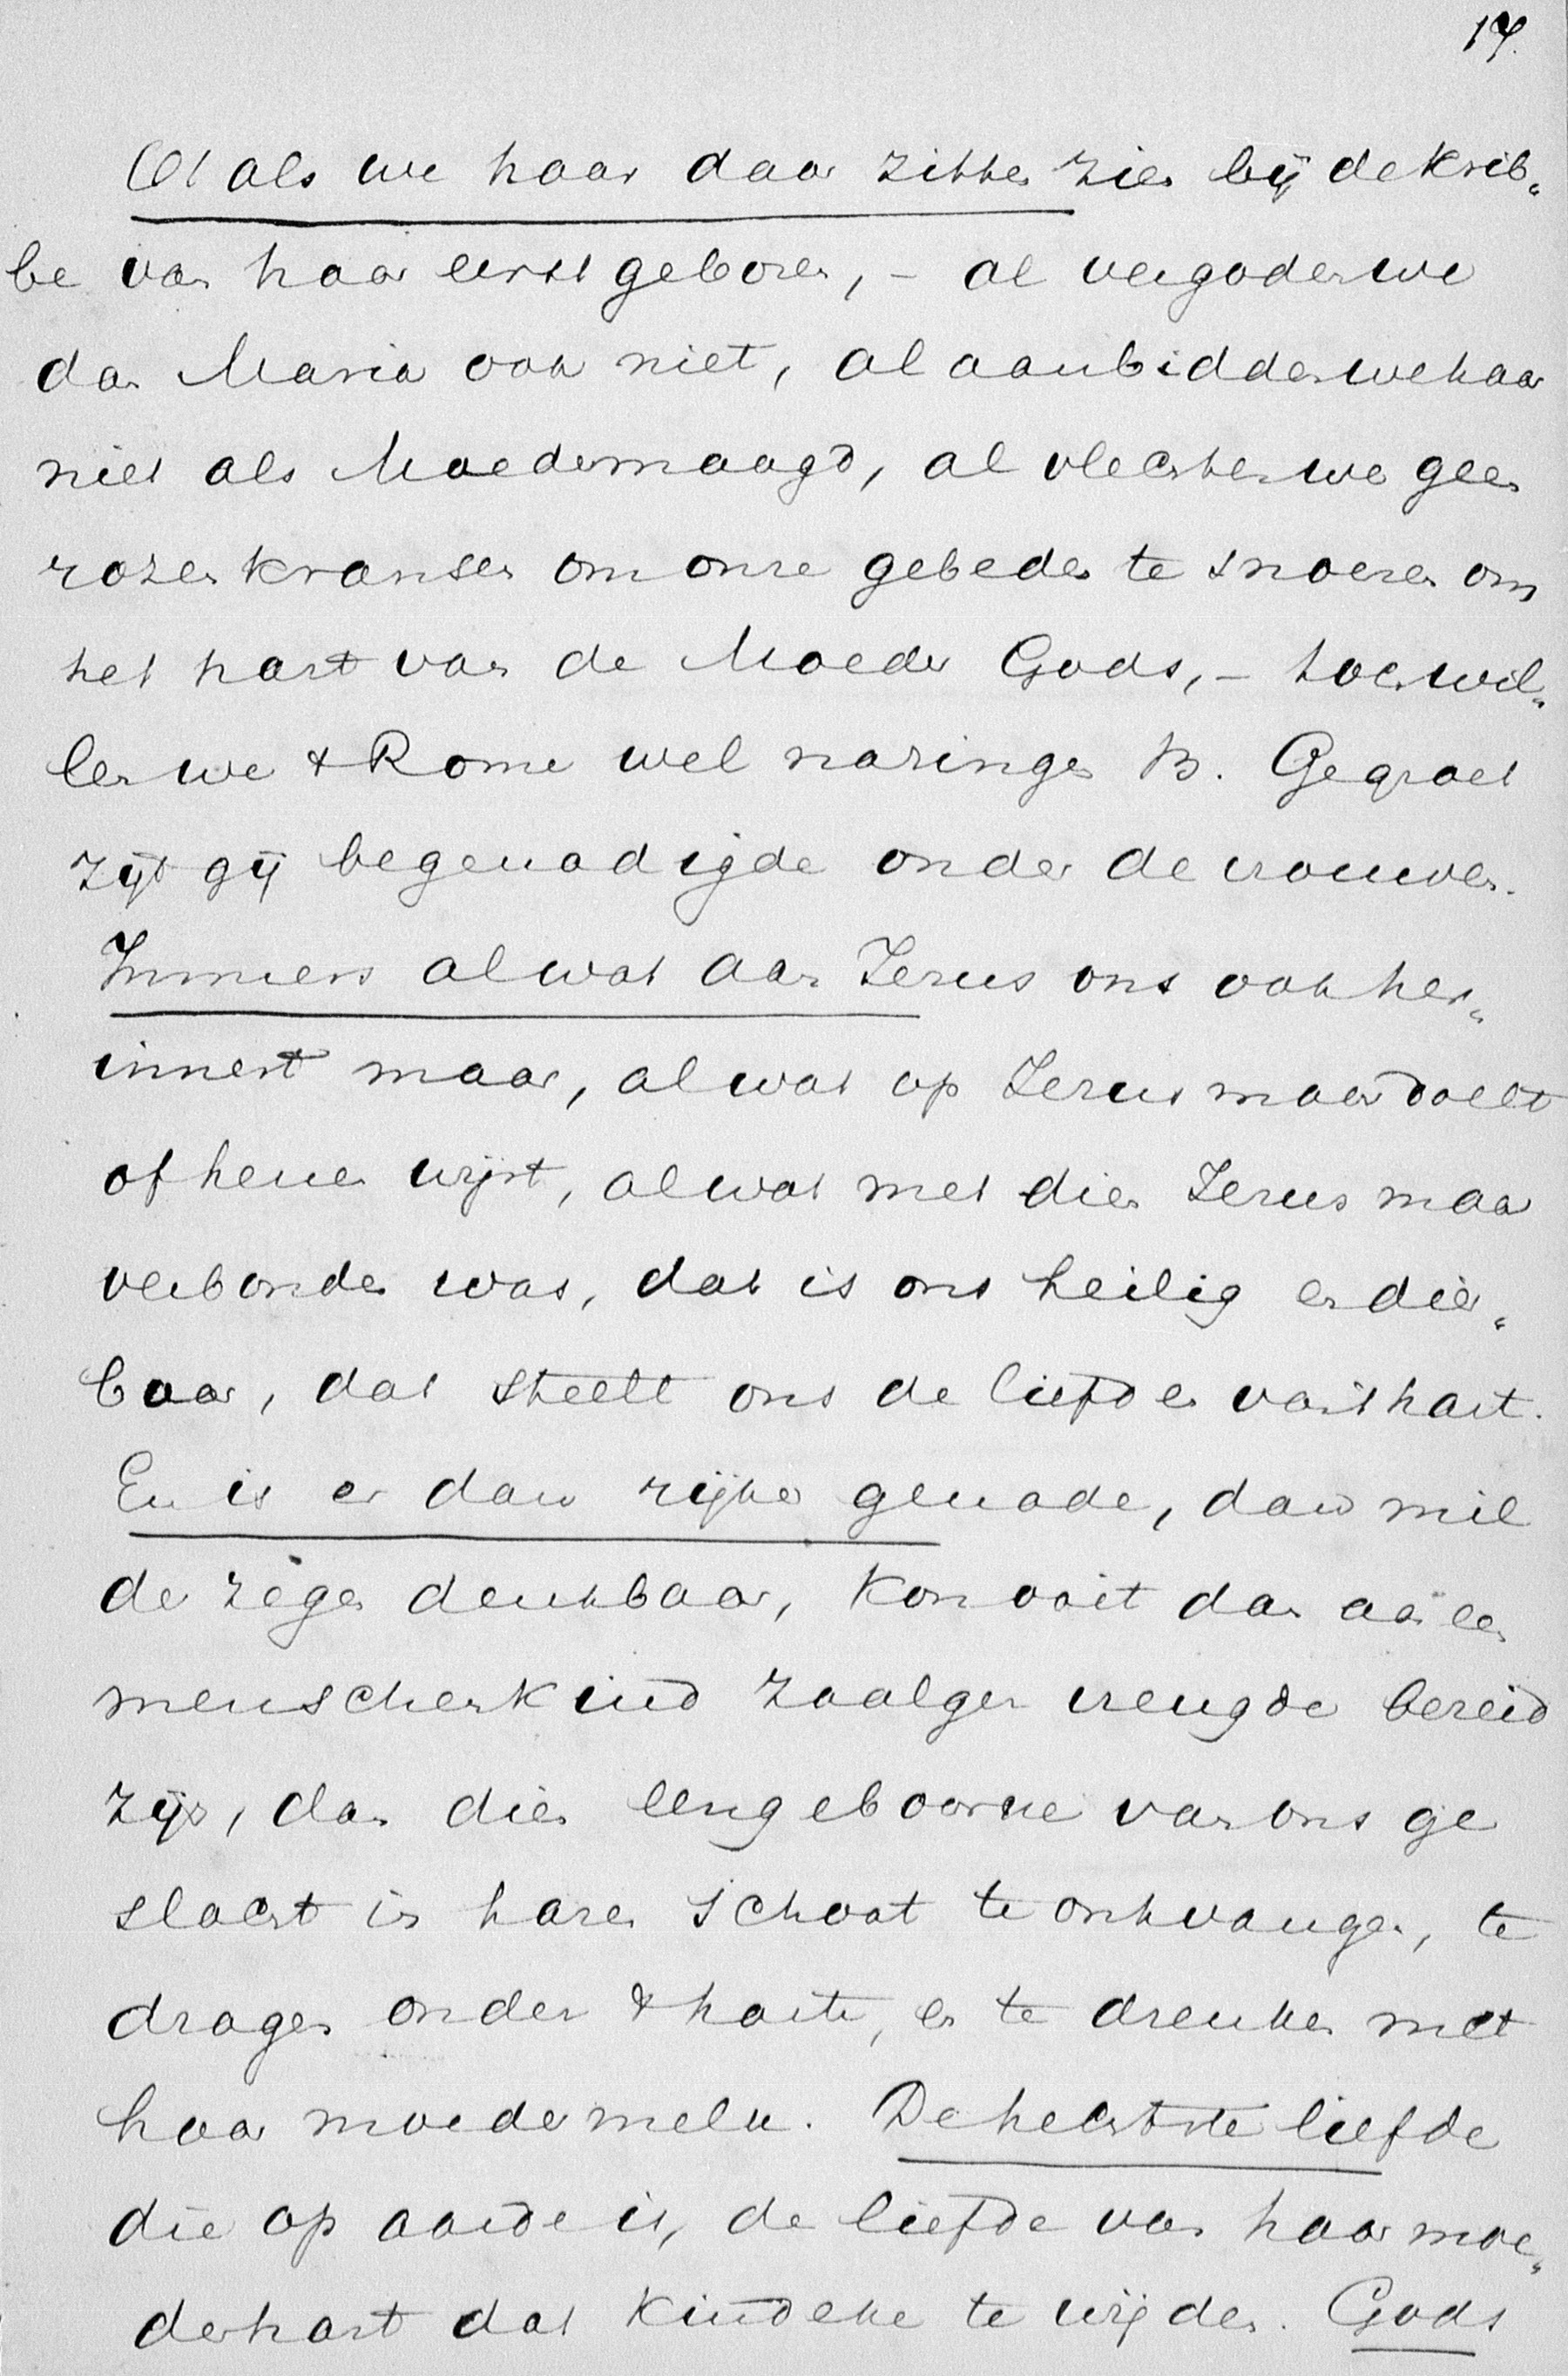 17.
O! als we haar daar zitten zien bij de krib„
be van haar eerstgeboren, – al vergoden we
dan Maria ook niet, al aanbidden we haar
niet als Moedermaagd, al vlechten we geen
rozenkransen om onze gebeden te snoeren om
het hart van de Moeder Gods, – toch wil„
len we t Rome wel nazingen B. Gegroet
zijt gij begenadigde onder de vrouwen.
Immers alwat aan Jezus ons ook her„
innert maar, alwat op Jezus maar doelt
of henen wijst, alwat met dien Jezus maar
verbonden was, dat is ons heilig en dier„
baar, dat steelt ons de liefde van 't hart.
En is er dan rijker genade, dan mil
der zegen denkbaar, kon ooit dan aan een
menschenkind zaalger vreugde bereid
zijn, dan dien eengeboorne van ons ge
slacht in haren schoot te ontvangen, te
dragen onder t harte, en te drenken met
haar moedermelk. De hechtste liefde
die op aarde is, de liefde van haar moe„
derhart dat kindeke te wijden. Gods